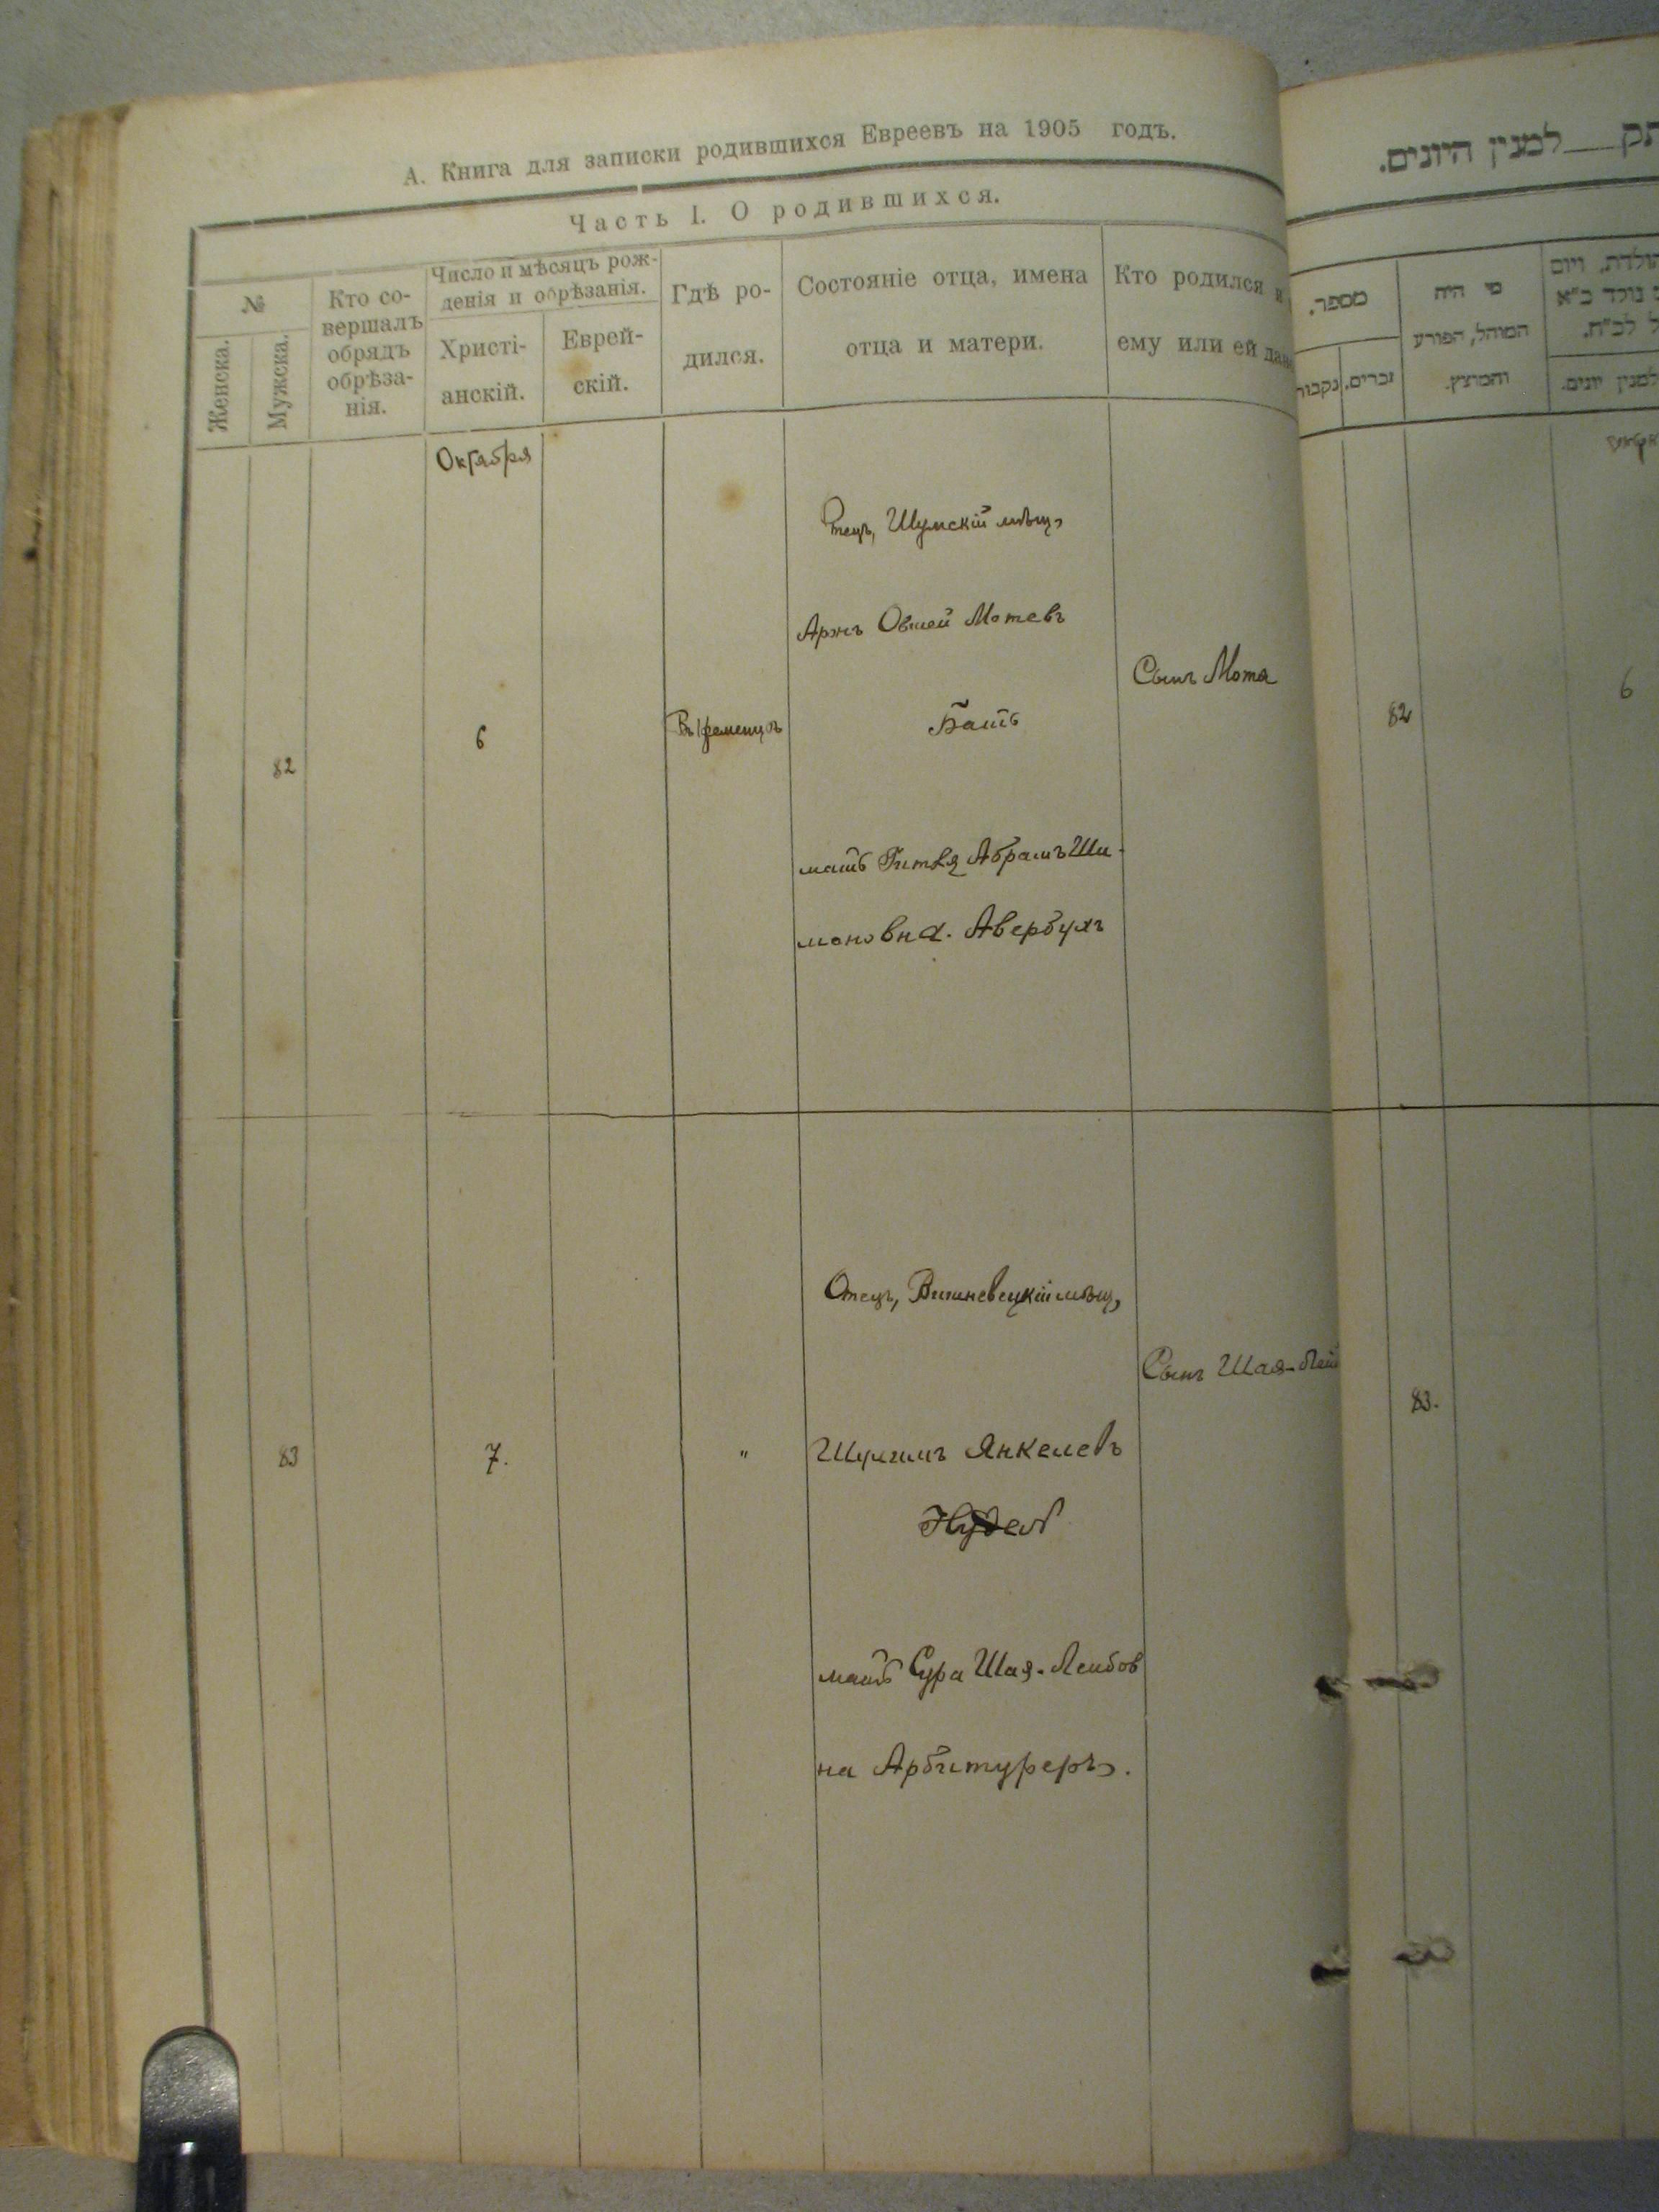 А. Книга для записки родившихся Евреевъ на 1905 годъ.
Часть I. О родившихся.
№
Женска.
Мужска.
Кто со-
вершалъ
обрядъ
обрѣза-
нія.
Число и мѣсяцъ рож-
денія и обрѣзанія.
Христі-
анскій.
Еврей-
скій.
Гдѣ ро-
дился.
Состояніе отца, имена
отца и матери.
Кто родился и
ему или ей дан
Октября
82
6
Въ Кременцѣ
Отецъ, Шумскій мѣщ,
Аронъ Овшей Мотевъ
Бать
мать Гитля Абрамъ Ши-
моновна. Авербухъ
Сынъ Мотя
83
7.
"
Отецъ, Вишневецкій мѣщ,
Янкелевъ
Нудель
мать Сура Шая-Леибов
на Арбитуреръ.
Сынъ Шая-Лей
למנין היונים.
מספר.
זכרים.
נקבות
מי היה
המוהל, הפורע
והמוצץ.
הולדת, ויום
נולד כ"א
ל לכ"ח.
למנין יונים.
82
6
83.